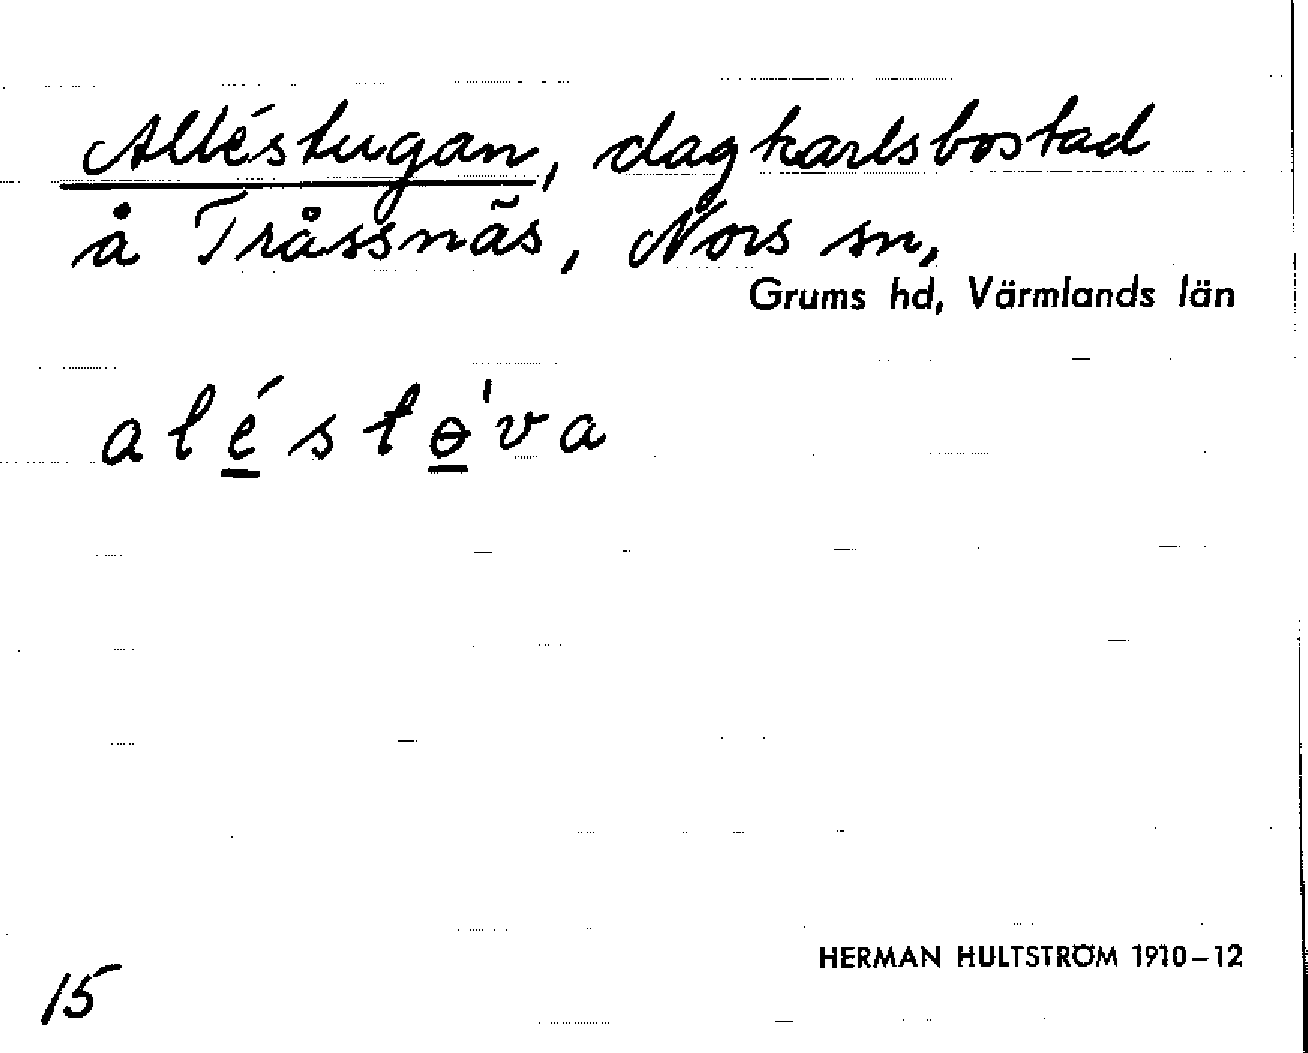 Alléstugan, dagkarlsbostad
å Tråssnäs, Nors sn,
Grums hd, Värmlands län
aléstɵ'va
HERMAN HULTSTRÖM 1910–12
15